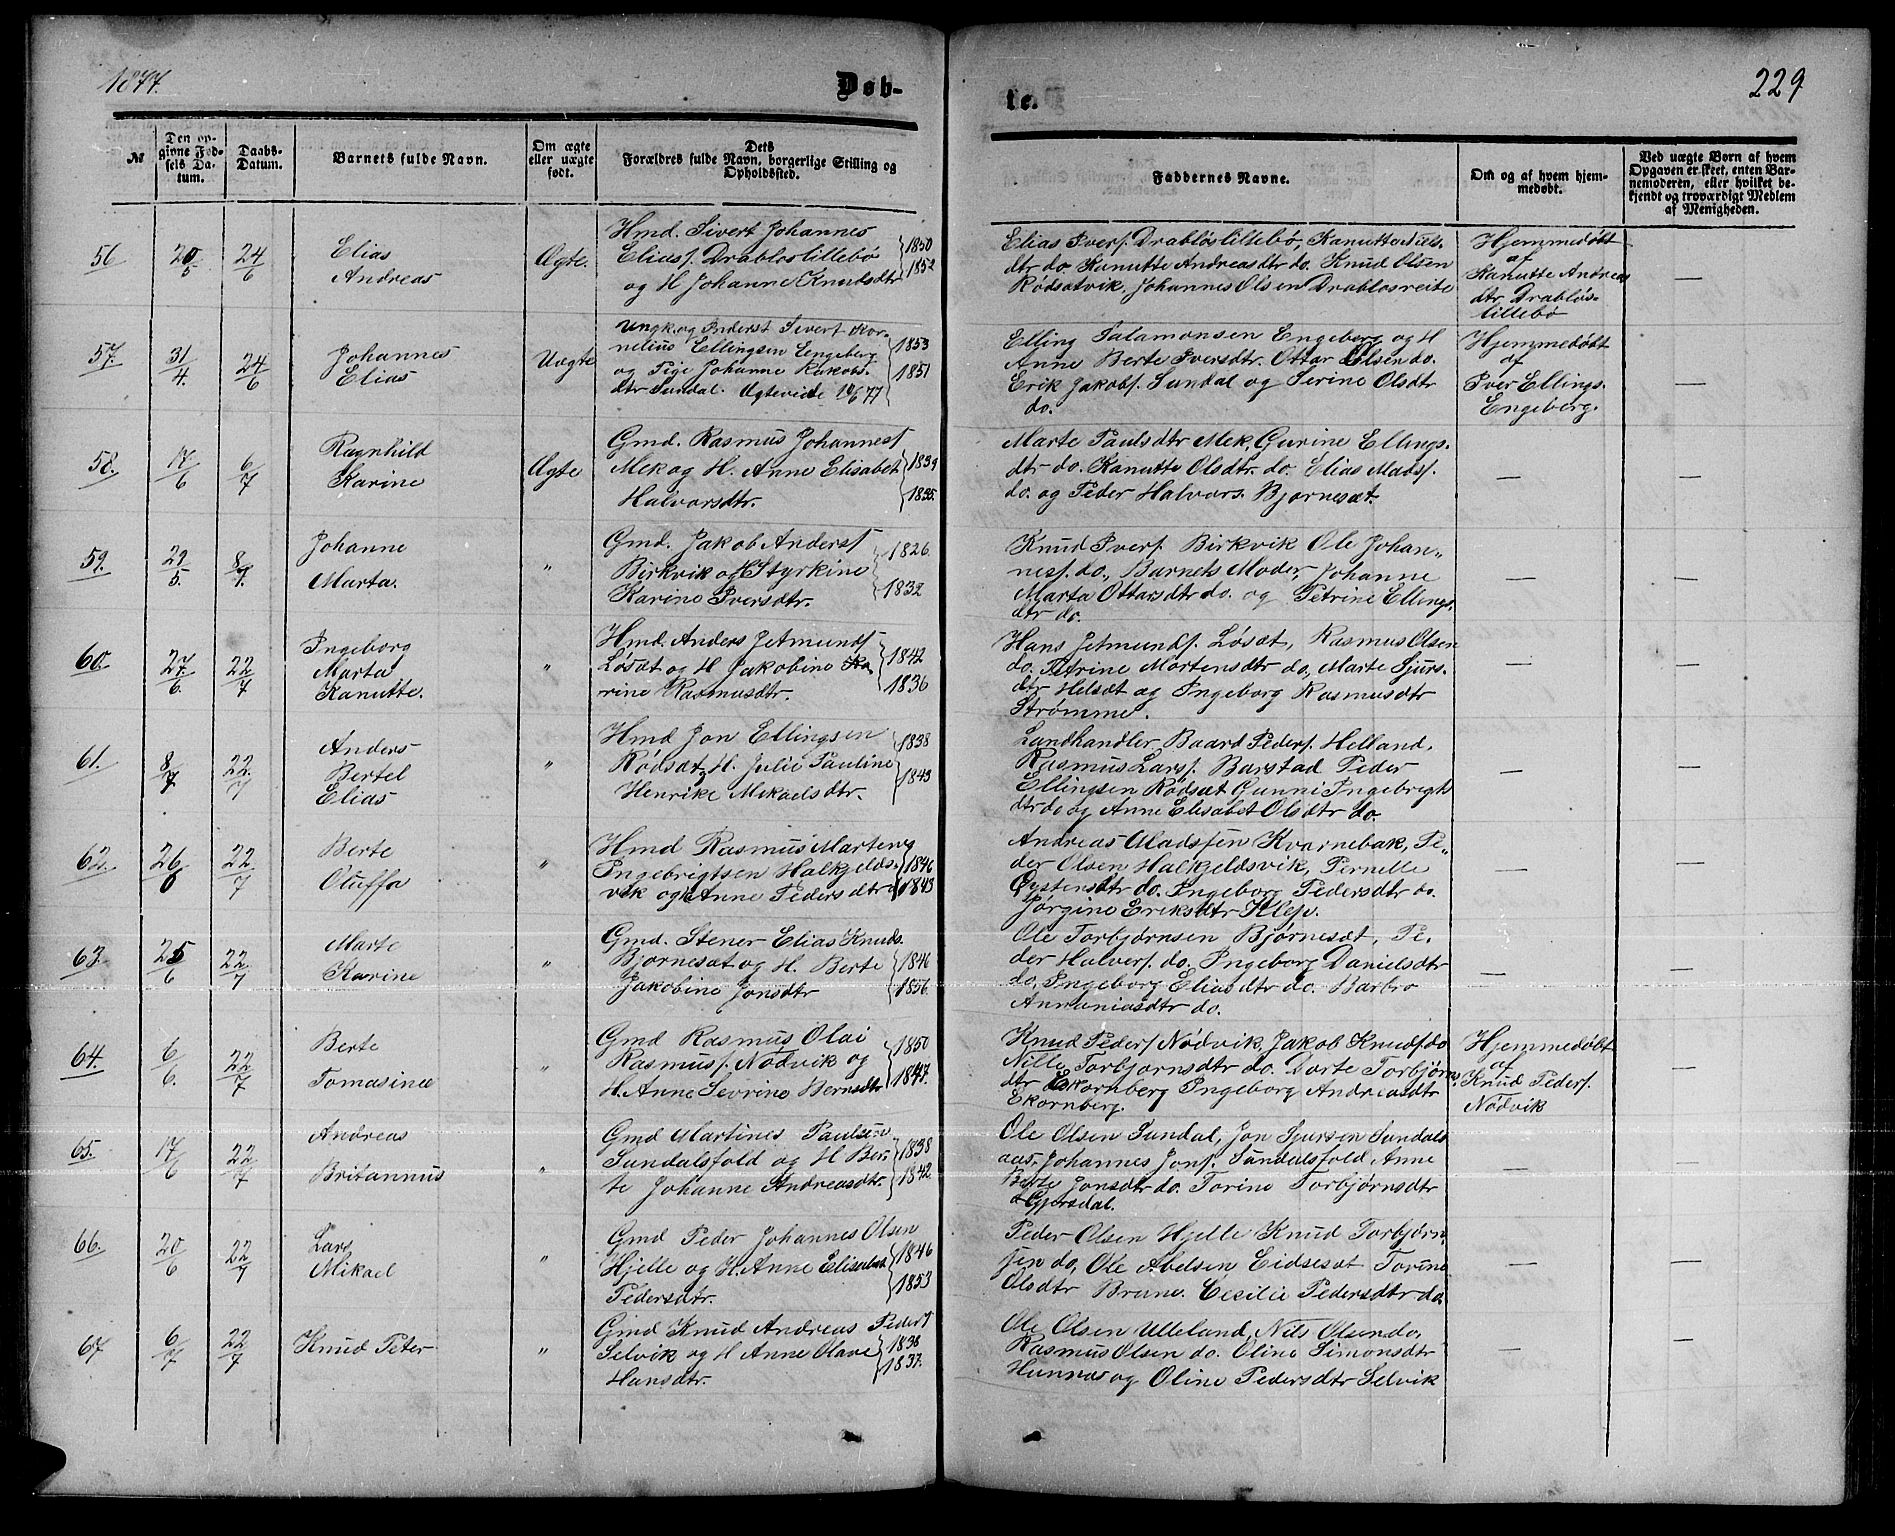 1877.
Døb-
te.
229
№
Den op-
givne Fød-
sels Da-
tum.
Daabs-
Datum.
Barnets fulde Navn.
Om ægte
eller uægte
født.
Dets
Forældres fulde Navn, borgerlige Stilling og
Opholdssted.
Faddernes Navne.
Om og af hvem hjem-
medøbt.
Ved uægte Børn af hvem
Opgaven er skeet, enten Bar-
nemoderen, eller hvilket be-
kjendt og troværdigt Medlem
af Menigheden.
56
20/5
24/6
Elias
Andreas
Ægte.
Hmd. Sivert Johannes
Eliass. Drabløslillebø
og H Johanne Knudsdtr
1850
1852
Elias Ivers. Drabløslillebø, Kanutte Nils-
dtr do Kanutte Andreasdtr do. Knud Olsen
Rødsætvik, Johannes Olsen Drabløsreite
Hjemmedøbt
af
Kanutte Andreas
dtr Drabløs-
lillebø
—
57.
31/4.
24/6
Johannes
Elias
Uægte
Ungk. og Inderst Sivert Kor-
nelius Ellingsen Engeberg
og Pige Johanne Jakobs-
dtr Sundal. Ægteviede 10/6 77
1853
1851
Elling Salamonsen Engeberg og H
Anne Berte Iversdtr. Ottar Olsen do.
Erik Jakobs. Sundal og Serine Olsdtr
do.
Hjemmedøbt
af
Iver Ellings.
Engeberg.
—
58.
17/6
6/7
Ragnhild
Karine
Ægte
Gmd. Rasmus Johanness
Mek og H. Anne Elisabet
Halvorsdtr.
1839
1835.
Marte Paulsdtr Mek, Gurine Ellings-
dtr do. Kanutte Olsdtr. do. Elias Madss.
do. og Peder Halvors. Bjørnesæt.
—
—
59.
29/5.
8/7.
Johanne
Marta.
"
Gmd. Jakob Anderss
Birkvik og H Styrkine
Karine Iversdtr.
1826
1832
Knud Ivers. Birkvik Ole Johan-
ness. do., Barnets Moder, Johanne
Marta Ottarsdtr do. og Petrine Ellings.
dtr do.
—
—
60.
27/6.
22/7
Ingeborg
Marta
Kanutte.
"
Hmd. Anders Jetmunds
Løsæt og H Jakobine Ka-
rine Rasmusdtr.
1842
1836
Hans Jetmunds. Løsæt, Rasmus Olsen
do. Petrine Mortensdtr do., Marte Sjurs-
dtr Helsæt og Ingeborg Rasmusdtr
Strømme.
—
—
61.
8/7
22/7
Anders
Bertel
Elias
"
Hmd Jon Ellingsen
Rødsæt, H. Julie Pauline
Henrike Mikaelsdtr.
1838
1843
Landhandler Baard Peders. Helland,
Rasmus Lars. Barstad Peder
Ellingsen Rødsæt Gunni Ingebrigts
dtr do og Anne Elisabet Olsdtr do.
—
—
62.
26/6
22/7
Berte
Oluffa
"
Hmd Rasmus Marten
Ingebrigtsen Halkjelds-
vik og H Anne Pedersdtr
1846
1843
Andreas Madssen Kvarnebak, Pe-
der Olsen Halkjeldsvik, Pernelle
Øystensdtr do. Ingeborg Pedersdtr do
Jørgine Eriksdtr Klep.
—
—
63.
25/6
22/7
Marte
Karine
"
Gmd. Stener Elias Knuds.
Bjørnesæt og H. Berte
Jakobine Jonsdtr
1846
1856.
Ole Torbjørnsen Bjørnesæt, Pe-
der Halvers. do. Ingeborg Danielsdtr
do, Ingeborg Eliasdtr do. Barbro
Annaniasdtr do.
—
—
64.
6/6.
22/7
Berte
Tomasine
"
Gmd Rasmus Olai
Rasmuss. Nødvik og
H. Anne Sevrine Berntsdtr
1850
1847.
Knud Peders. Nødvik, Jakob Knuds. do
Nille Torbjørnsdtr do. Dorte Torbjørns
dtr Ekornberg Ingeborg Andreasdtr
Ekornberg.
Hjemmedøbt
af
Knud Peders.
Nødvik
—
65.
17/6
22/7
Andreas
Britannus
"
Gmd Martines Paulsen
Sundalsfold og H Ber-
te Johanne Andreasdtr.
1838
1842.
Ole Olsen Sundal, Jon Sjursen Sundals
aas, Johannes Jons. Sundalsfold, Anne
Berte Jonsdtr do. Torine Torbjørnsdtr
Gjersdal.
—
—
66.
20/6
22/7
Lars
Mikael
"
Gmd Peder Johannes Olsen
Hjelle og H. Anne Elisabet
Pedersdtr.
1846
1853
Peder Olsen Hjelle Knud Torbjørn-
sen do, Ole Abelsen Eidsesæt Torine
Olsdtr Brune. Cecilie Pedersdtr do.
—
—
67
6/7
22/7
Knud Peter
"
Gmd Knud Andreas Peders
Selvik og H Anne Olave
Hansdtr.
1838
1837.
Ole Olsen Ulleland, Nils Olsen do,
Rasmus Olsen do. Oline Simonsdtr
Hunnæs og Oline Pedersdtr Selvik
—
—